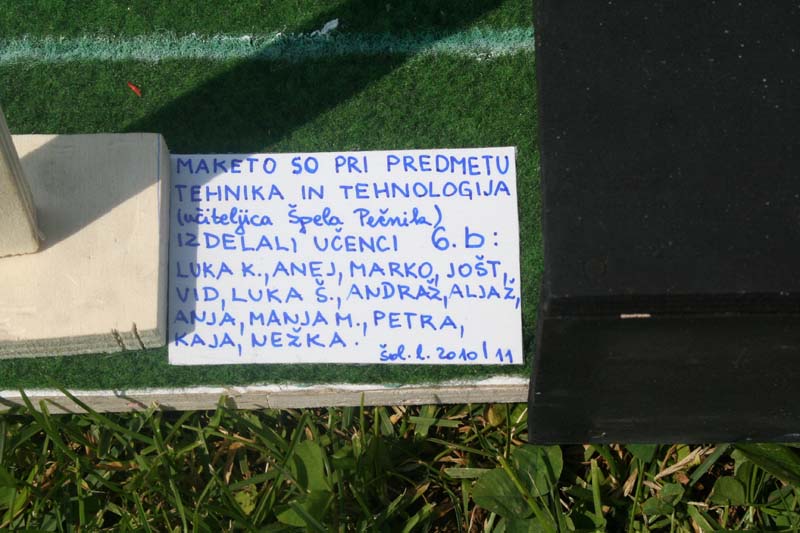 MAKETO SO PRI PREDMETU
TEHNIKA IN TEHNOLOGIJA
(učiteljica Špela Pečnik)
IZDELALI UČENCI 6.b:
LUKA K., ANEJ, MARKO, JOŠT,
VID, LUKA Š., ANDRAŽ, ALJAŽ,
ANJA, MANJA M., PETRA,
KAJA, NEŽKA.
šol. l. 2010/11